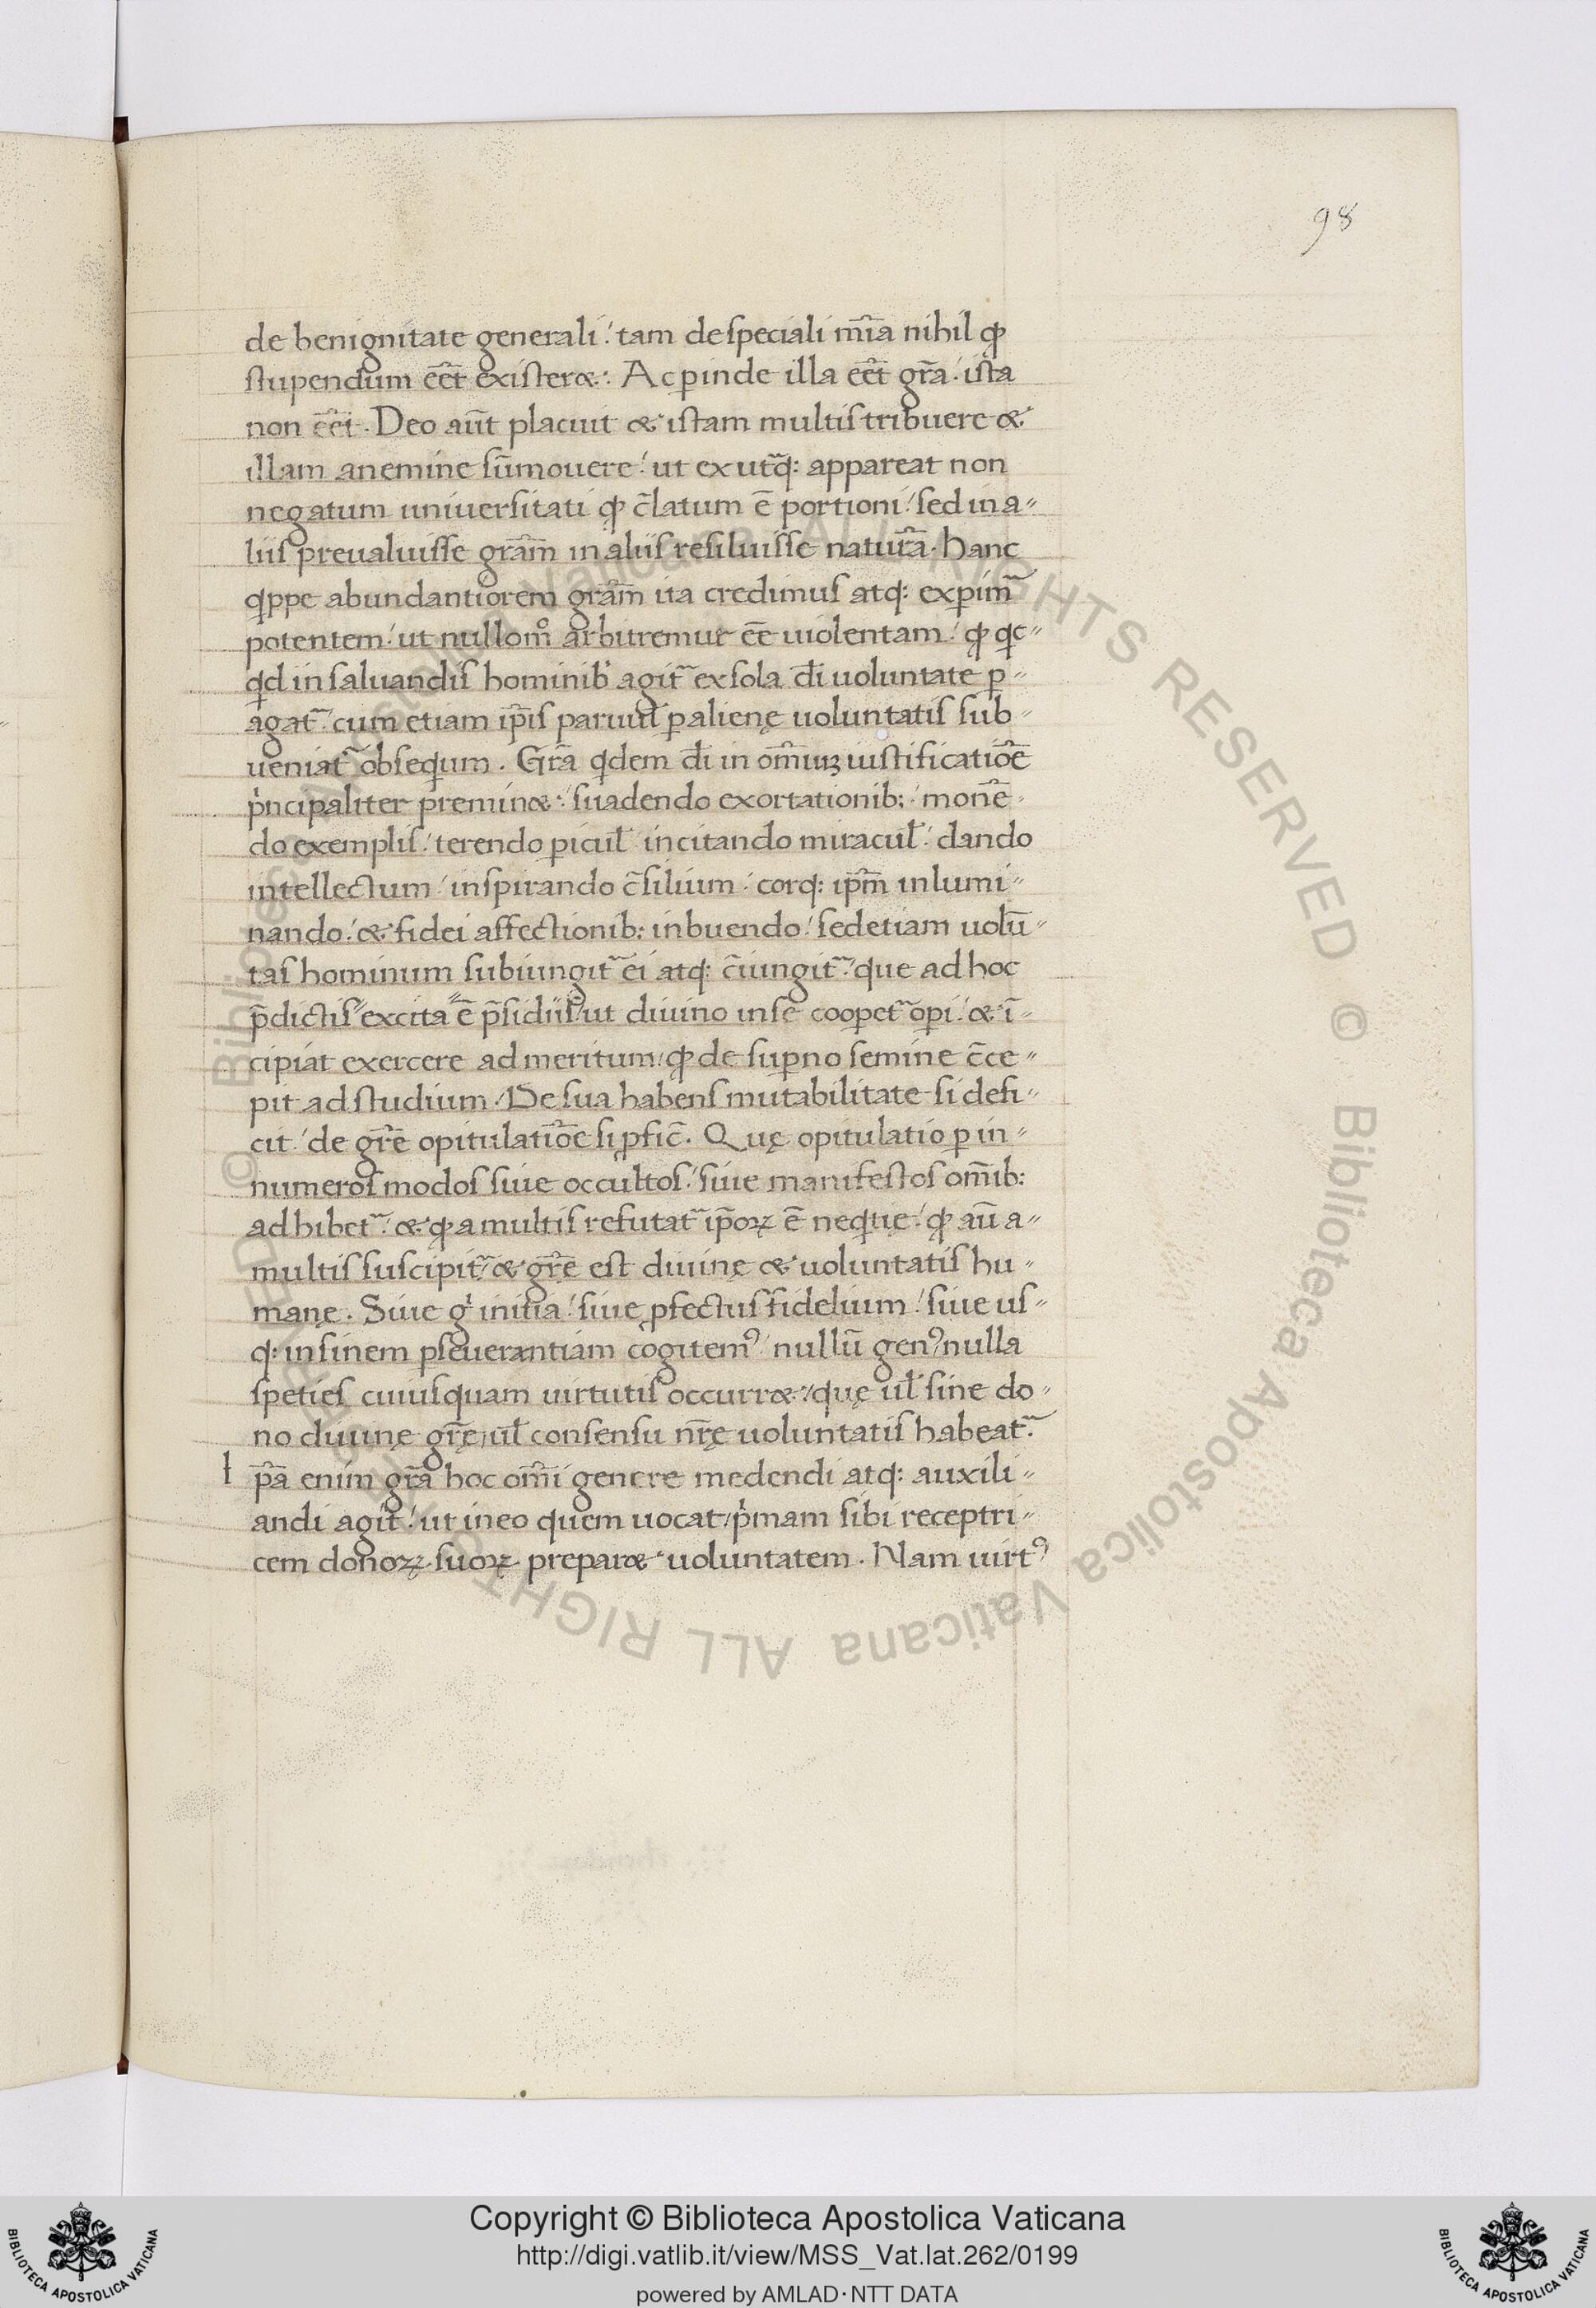 98
de benignitate generali! tam de speciali mĩa nihil qꝫ
stupendum eēt existeret: Ac ꝑinde illa eēt gr̃a. ista
non eēt. Deo aūt placuit &istam multis tribuere &
illam anemine sūmouere! ut ex utq̃: appareat non
negatum uniuersitati qꝫ c̃latum ē portioni! sed in a〃
liis preualuisse grãm in aliis resiluisse naturã. hanc
qppe abundantiorem grãm ita credimus atq: exꝑim̃
potentem! ut nullomº arbitremur eē uiolentam! qꝫ qc〃
qd in saluandis hominibꝰ agit᷉ ex sola d̄i uoluntate ꝑ〃
agat᷉. cum etiam ip̄is paruul ꝑ alienę uoluntatis sub〃
ueniat᷉ obsequm. Gr̃a qdem d̄i in om̄iuꝫ iustificatiōe
pⁱncipaliter preminet! suadendo exortationib; ! monē〃
do exemplis! terendo ꝑicul̄ incitando miracul̄! dando
intellectum! inspirando c̃silium! corq: ip̄m inlumi〃
nando! & fidei affectionib; inbuendo! sed etiam uolū〃
tas hominum subiungit᷉ ei atq: c̃iungit᷉! que ad hoc
p̄dictis excita ē p̄sidiis! ut diuino in se cooꝑet᷉ oꝑi! & ī〃
cipiat exercere ad meritum! qꝫ de suꝑno semine c̃ce〃
pit ad studium. De sua habens mutabilitate si defi〃
cit! de gr̃e opitulatiōe si ꝓfic̄. Quę opitulatio ꝑ in〃
numeros modos siue occultos! siue manifestos om̄ib;
adhibet᷉! & qꝫ a multis refutat᷉ ip̄oꝝ ē neqtię! qꝫ aū a〃
multis suscipit᷉! & gr̃ę est diuinę & uoluntatis hu〃
manę. Siue gⁱ initia! siue ꝓfectus fidelium! siue us〃
q: in finem ꝑseuerantiam cogitemꝰ! nullū genꝰ nulla
speties cuiusquam uirtutis occurret! quę ul̄ sine do〃
no diuinę gr̃ę, ul̄ consensu nr̃ę uoluntatis habeat᷉.
I p̄a enim gr̃a hoc om̄i genere medendi atq: auxili〃
andi agit! ut in eo quem uocat, pⁱmam sibi receptri〃
cem donoꝝ suoꝝ preparet uoluntatem. Nam uirtꝰ
Copyright © Biblioteca Apostolica Vaticana
http://digi.vatlib.it/view/MSS_Vat.lat.262/0199
powered by AMLAD·NTT DATA
BIBLIOTECA APOSTOLICA VATICANA
BIBLIOTECA APOSTOLICA VATICANA
© Biblioteca Apostolica Vaticana ALL RIGHTS RESERVED
© Biblioteca Apostolica Vaticana ALL RIGHTS RESERVED